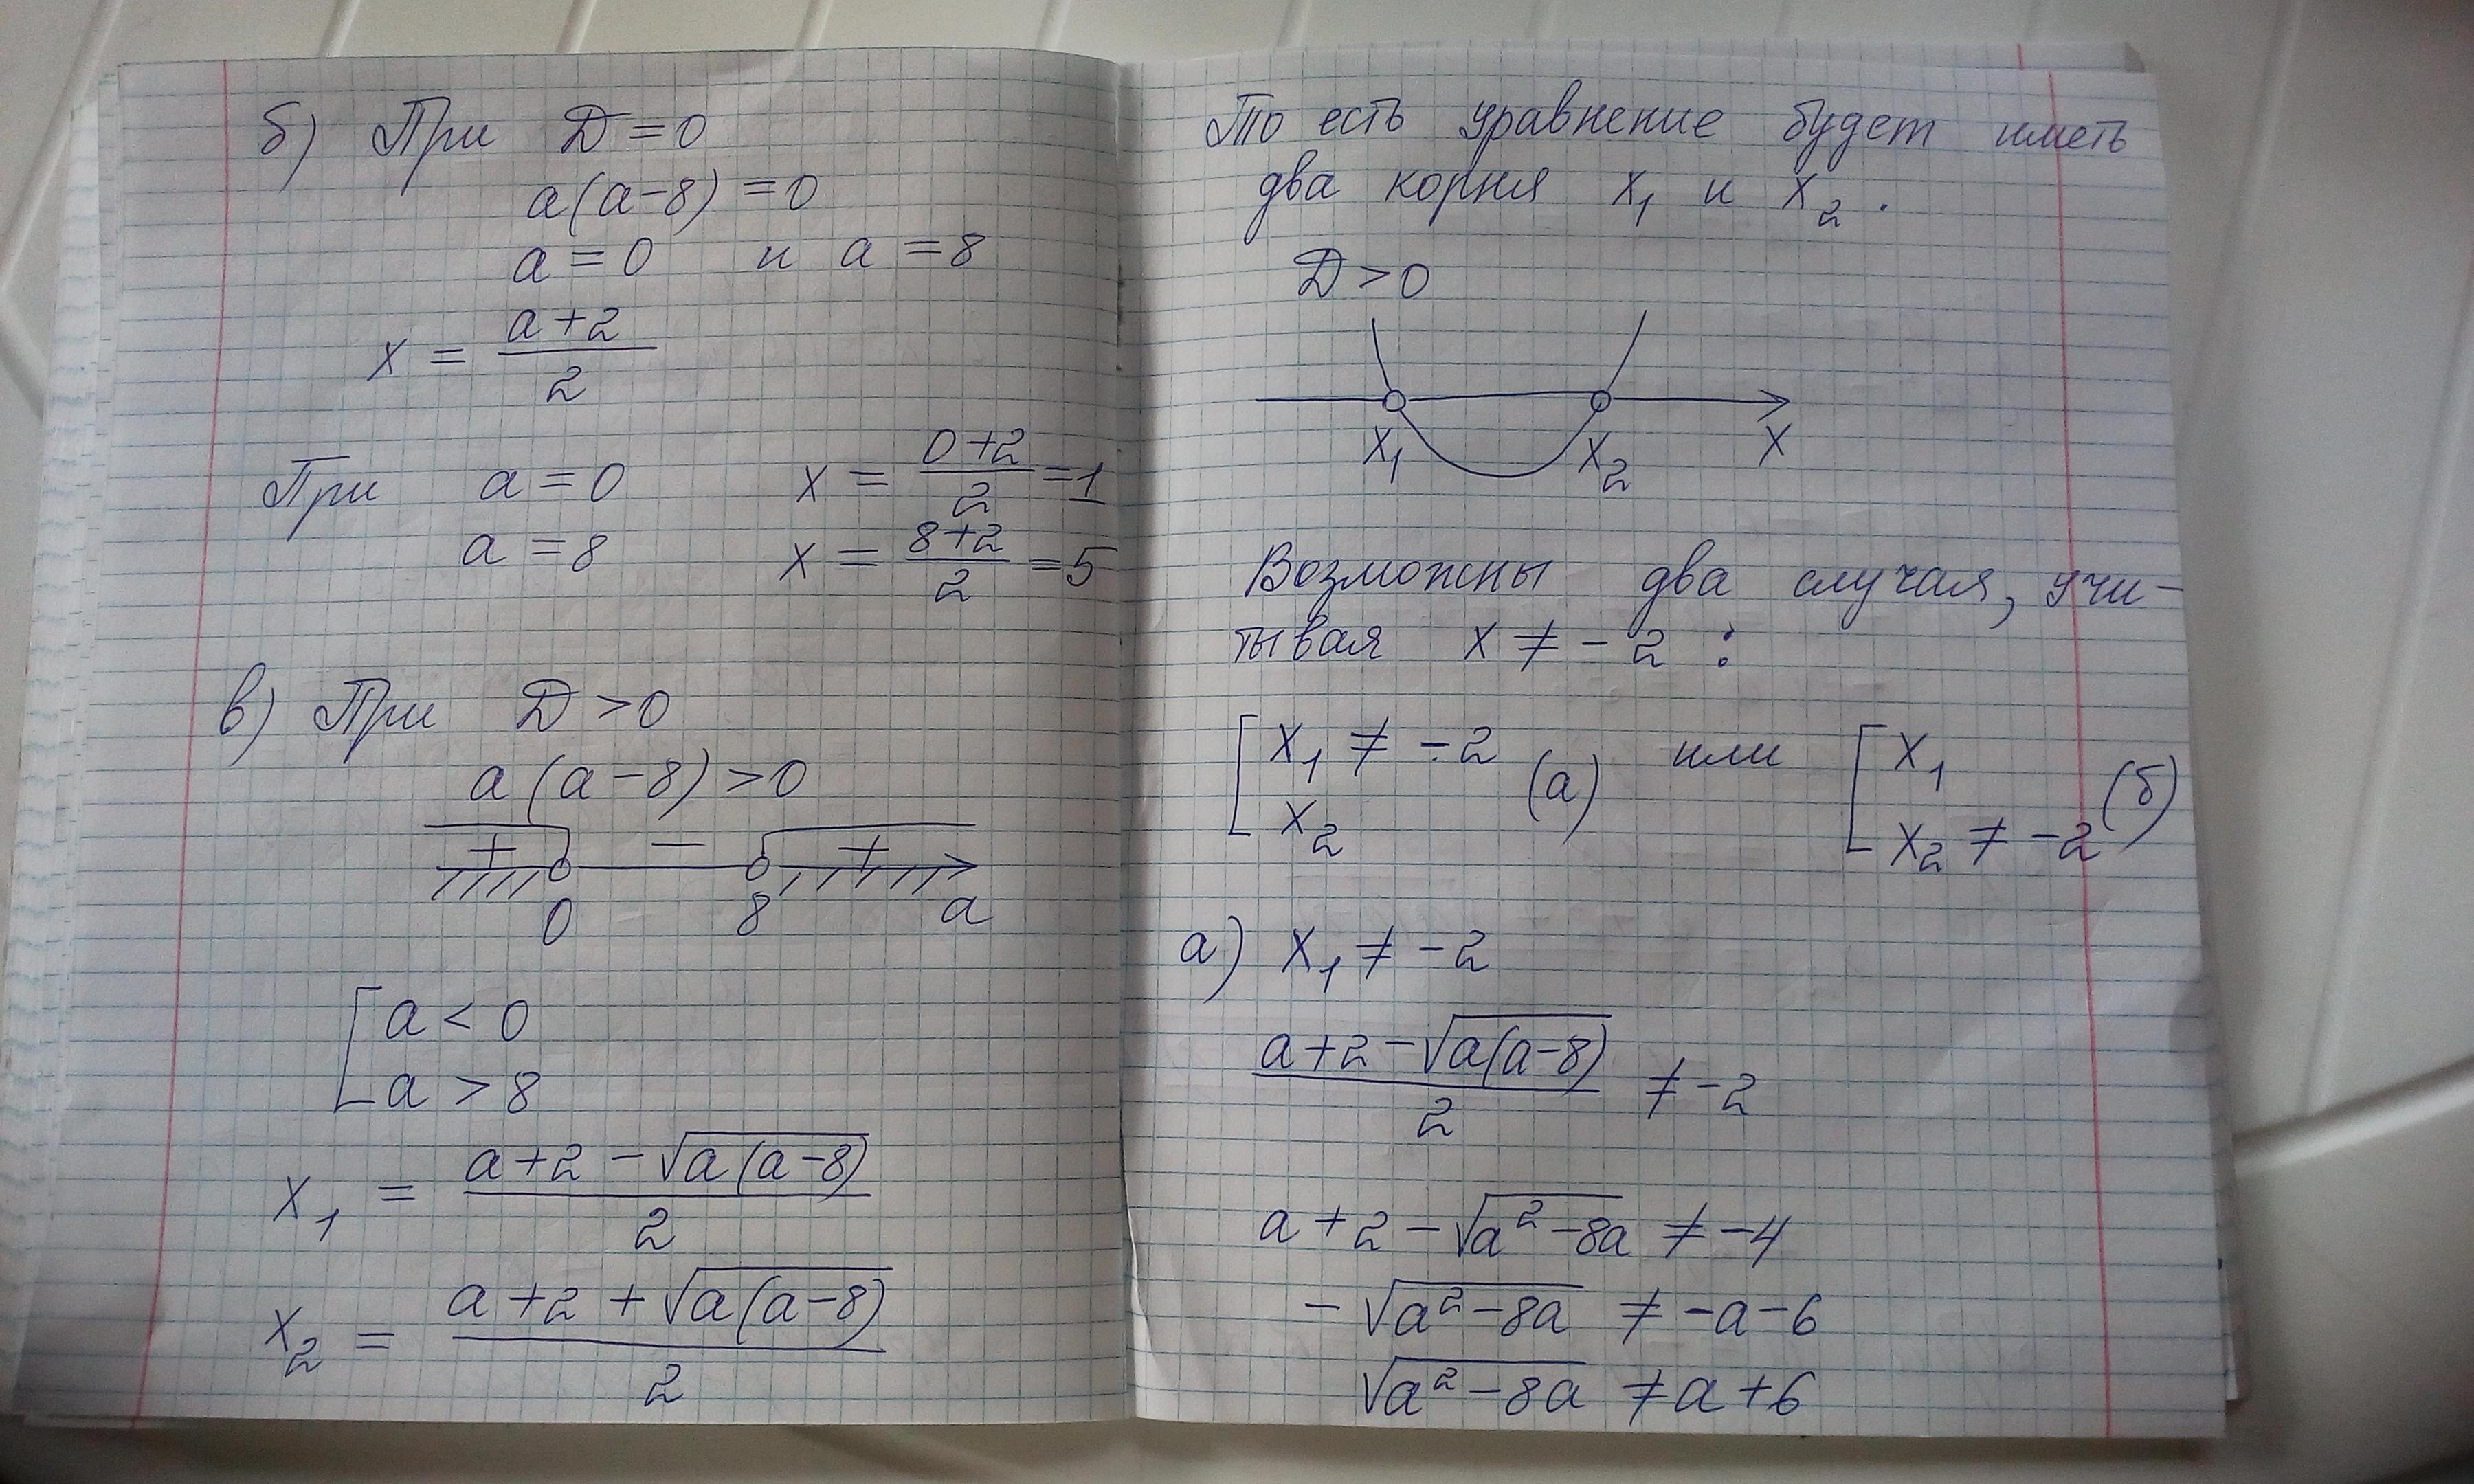 б) При Д = 0
a(a-8) = 0
a = 0 и a = 8
x = (a+2)/2
При a = 0 x = (0+2)/2 = 1
a = 8 x = (8+2)/2 = 5
в) При Д > 0
a(a-8) > 0
+ − +
0 8 a
[ a < 0
a > 8
x₁ = (a+2-√(a(a-8)))/2
x₂ = (a+2+√(a(a-8)))/2
То есть уравнение будет иметь
два корня x₁ и x₂.
Д > 0
x₁ x₂ x
Возможны два случая, учи-
тывая x ≠ -2 :
[ x₁ ≠ -2 (а) или [ x₁ (б)
x₂ x₂ ≠ -2
а) x₁ ≠ -2
(a+2-√(a(a-8)))/2 ≠ -2
a+2-√(a²-8a) ≠ -4
-√(a²-8a) ≠ -a-6
√(a²-8a) ≠ a+6